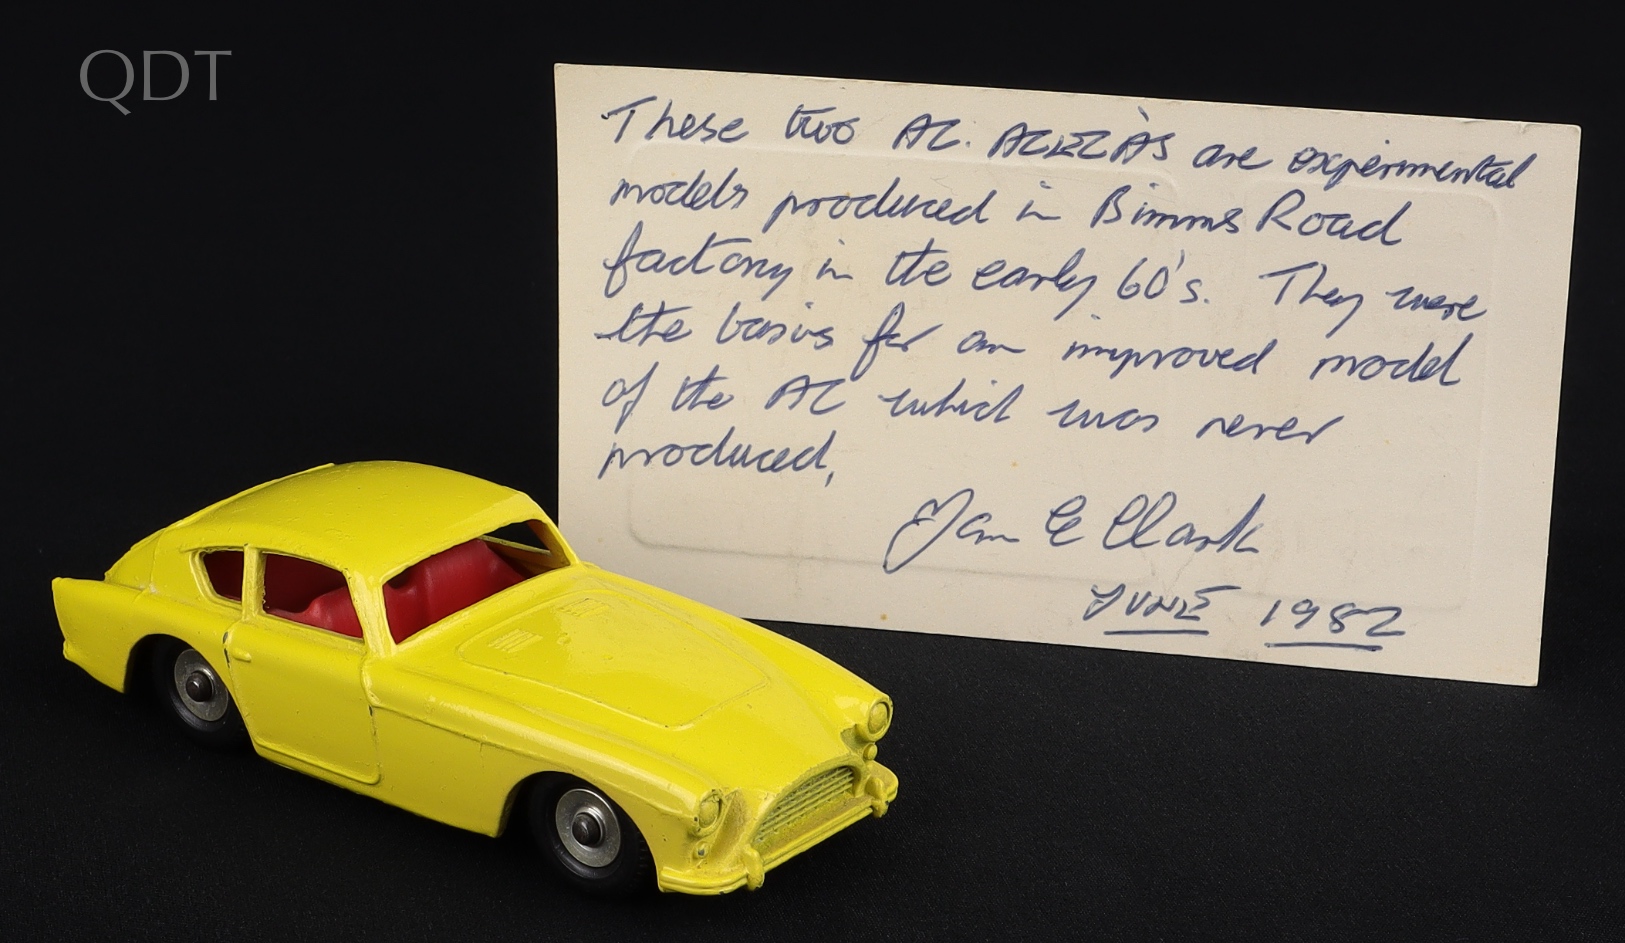 QDT
These two AC. ACECA'S are experimental
models produced in Bimms Road
factory in the early 60's. They were
the basis for an improved model
of the AC which was never
produced,
Ian G Clark
JUNE 1982